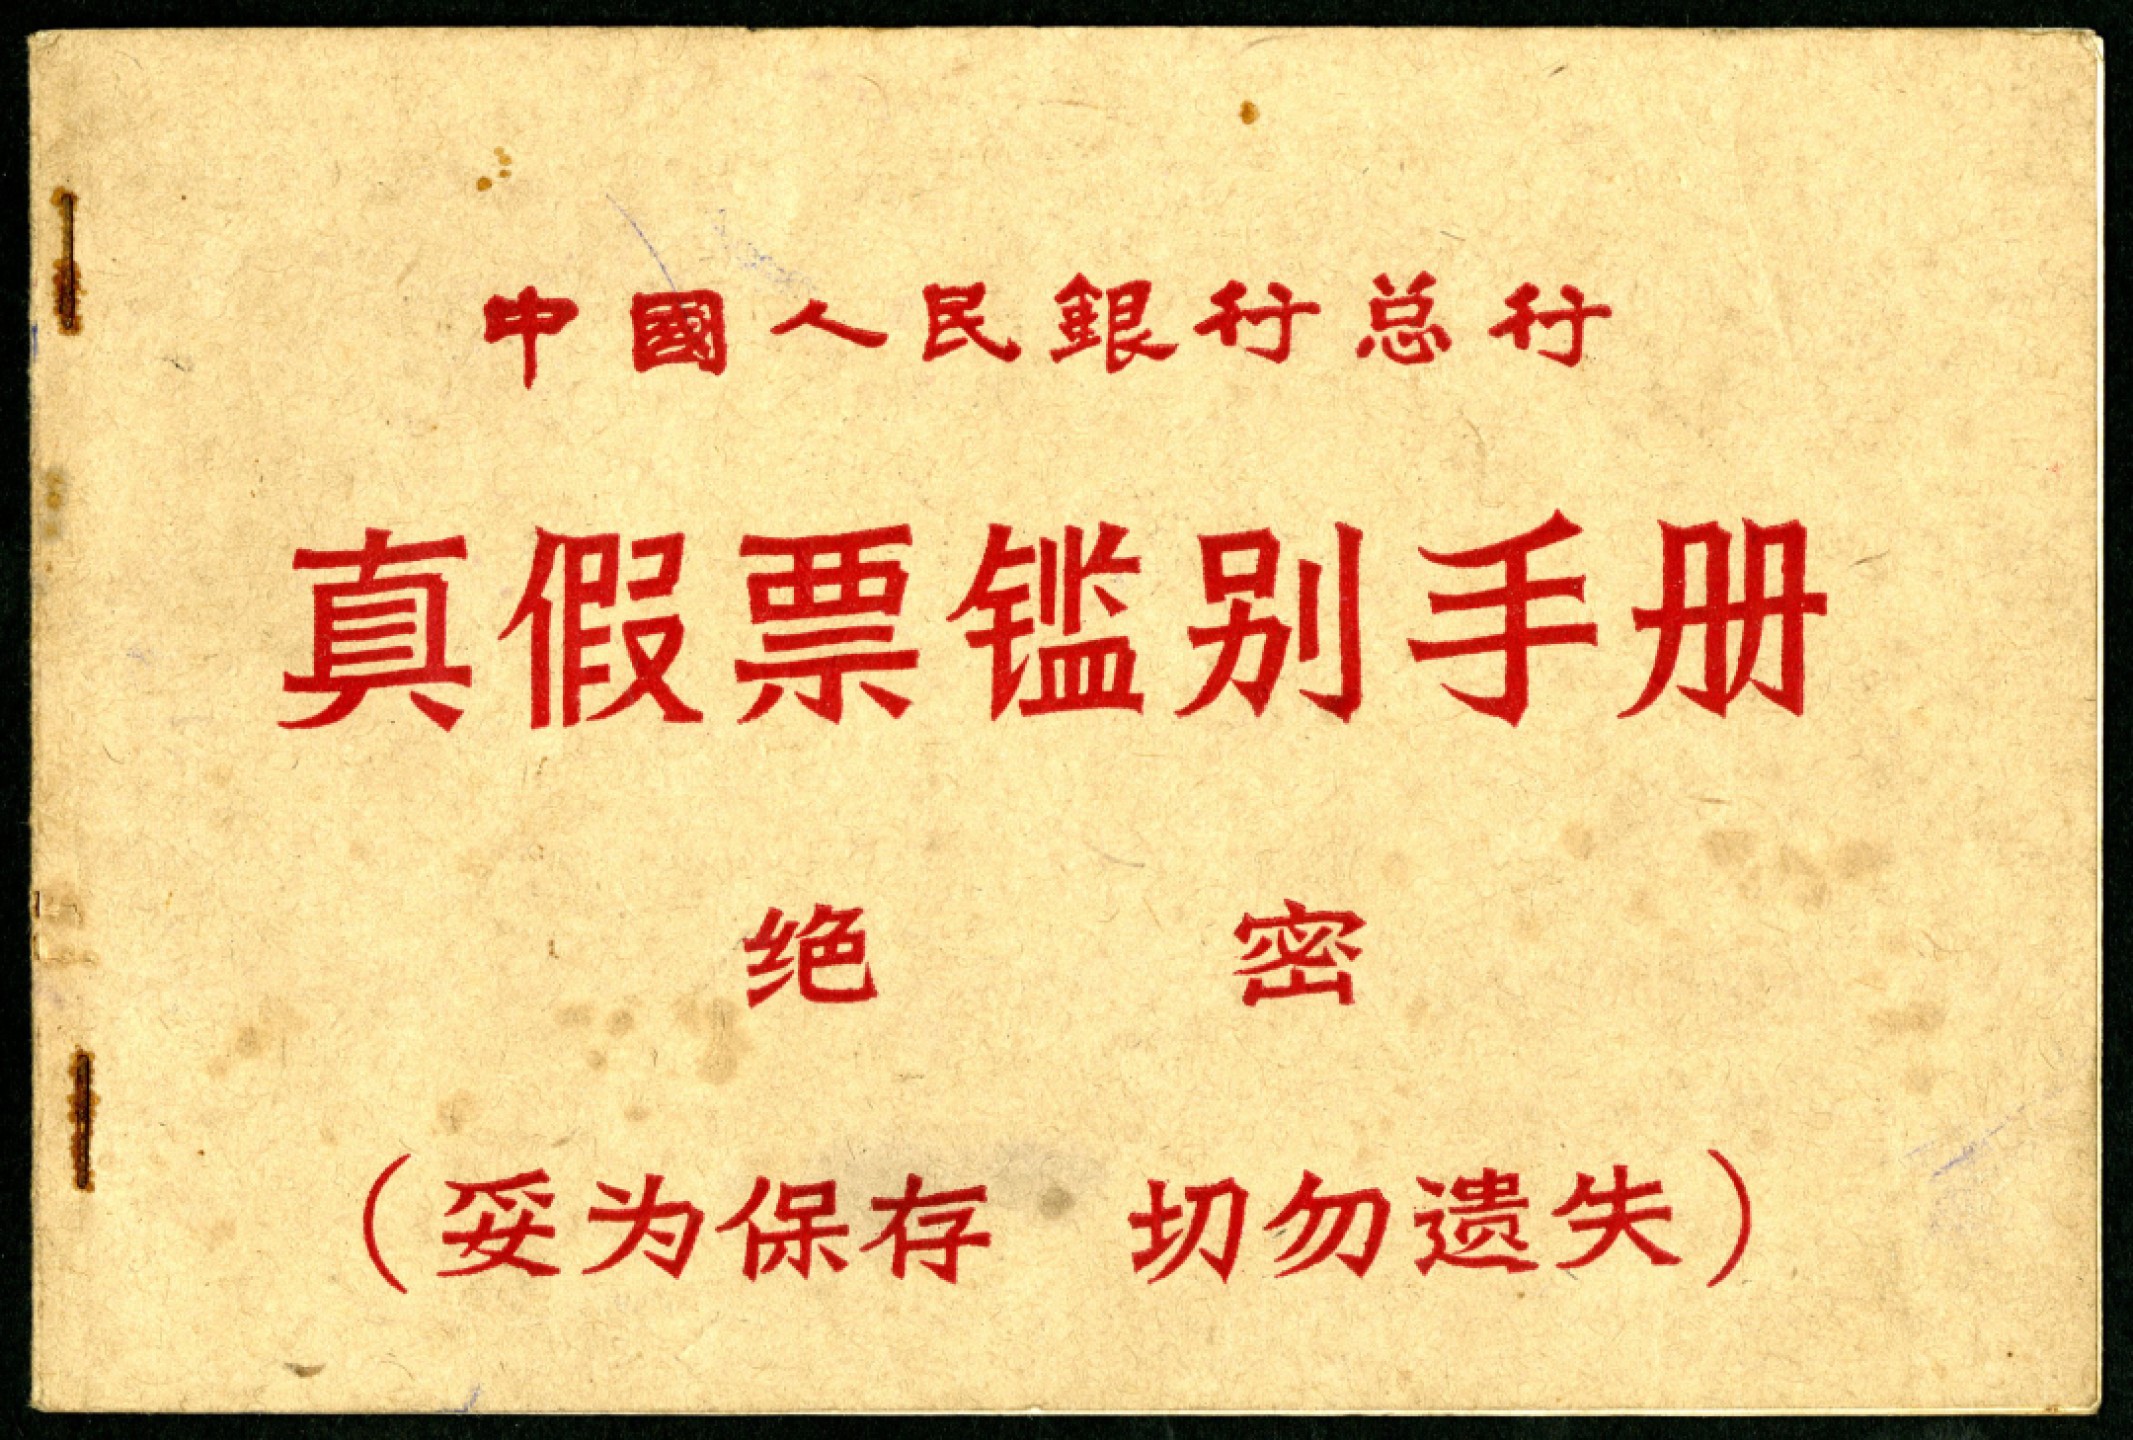 中國人民銀行总行
真假票鉴别手册
绝 密
（妥为保存 切勿遗失）